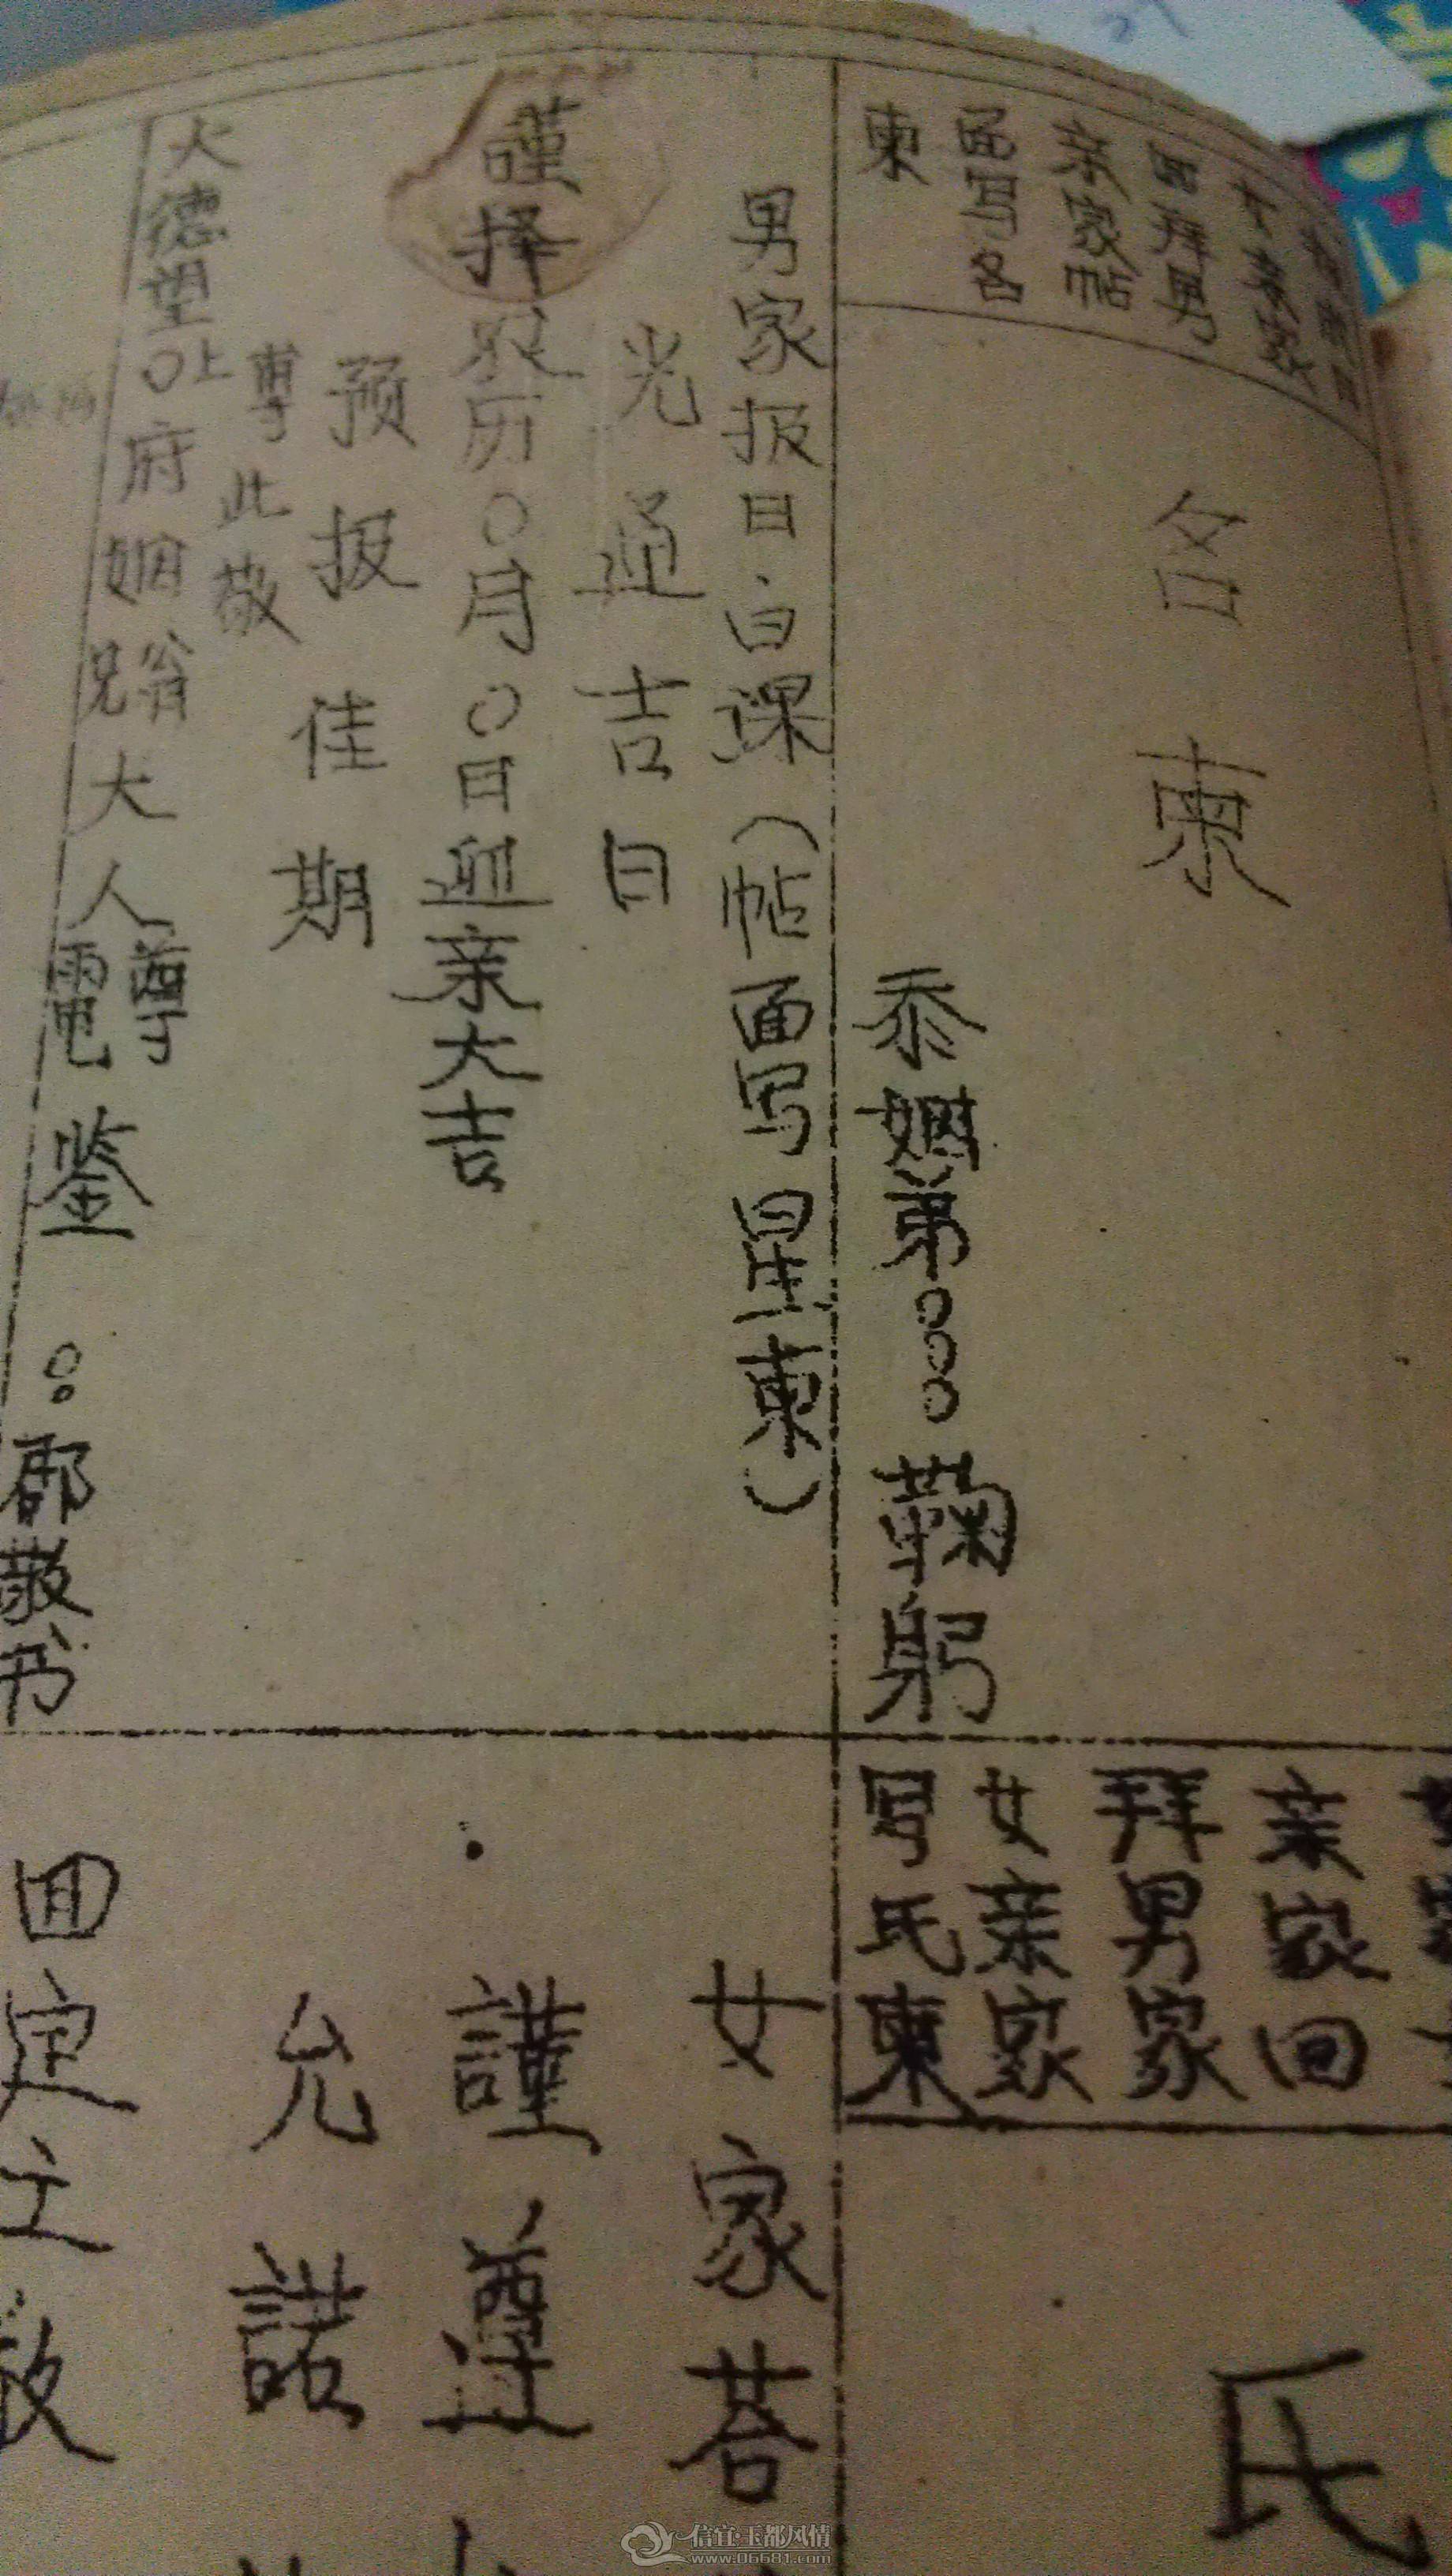 回拜男
亲家帖
面写名
柬
名柬
忝姻弟○○○鞠躬
男家报日·白课（帖面写星柬）
光通吉日
謹择农历○月○日迎亲大吉
预报佳期
尊此敬
大德望○上府姻翁兄大人尊電鉴 ○○郡敬书
亲家回
拜男家
女亲家
写氏柬
氏
女家荅
謹遵
允諾
回定
信宜·玉都风情
www.06681.com